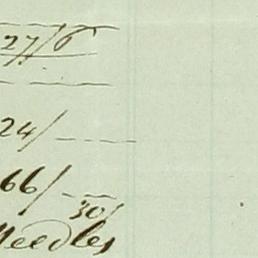 27/6
24/
66/
30/
Needles